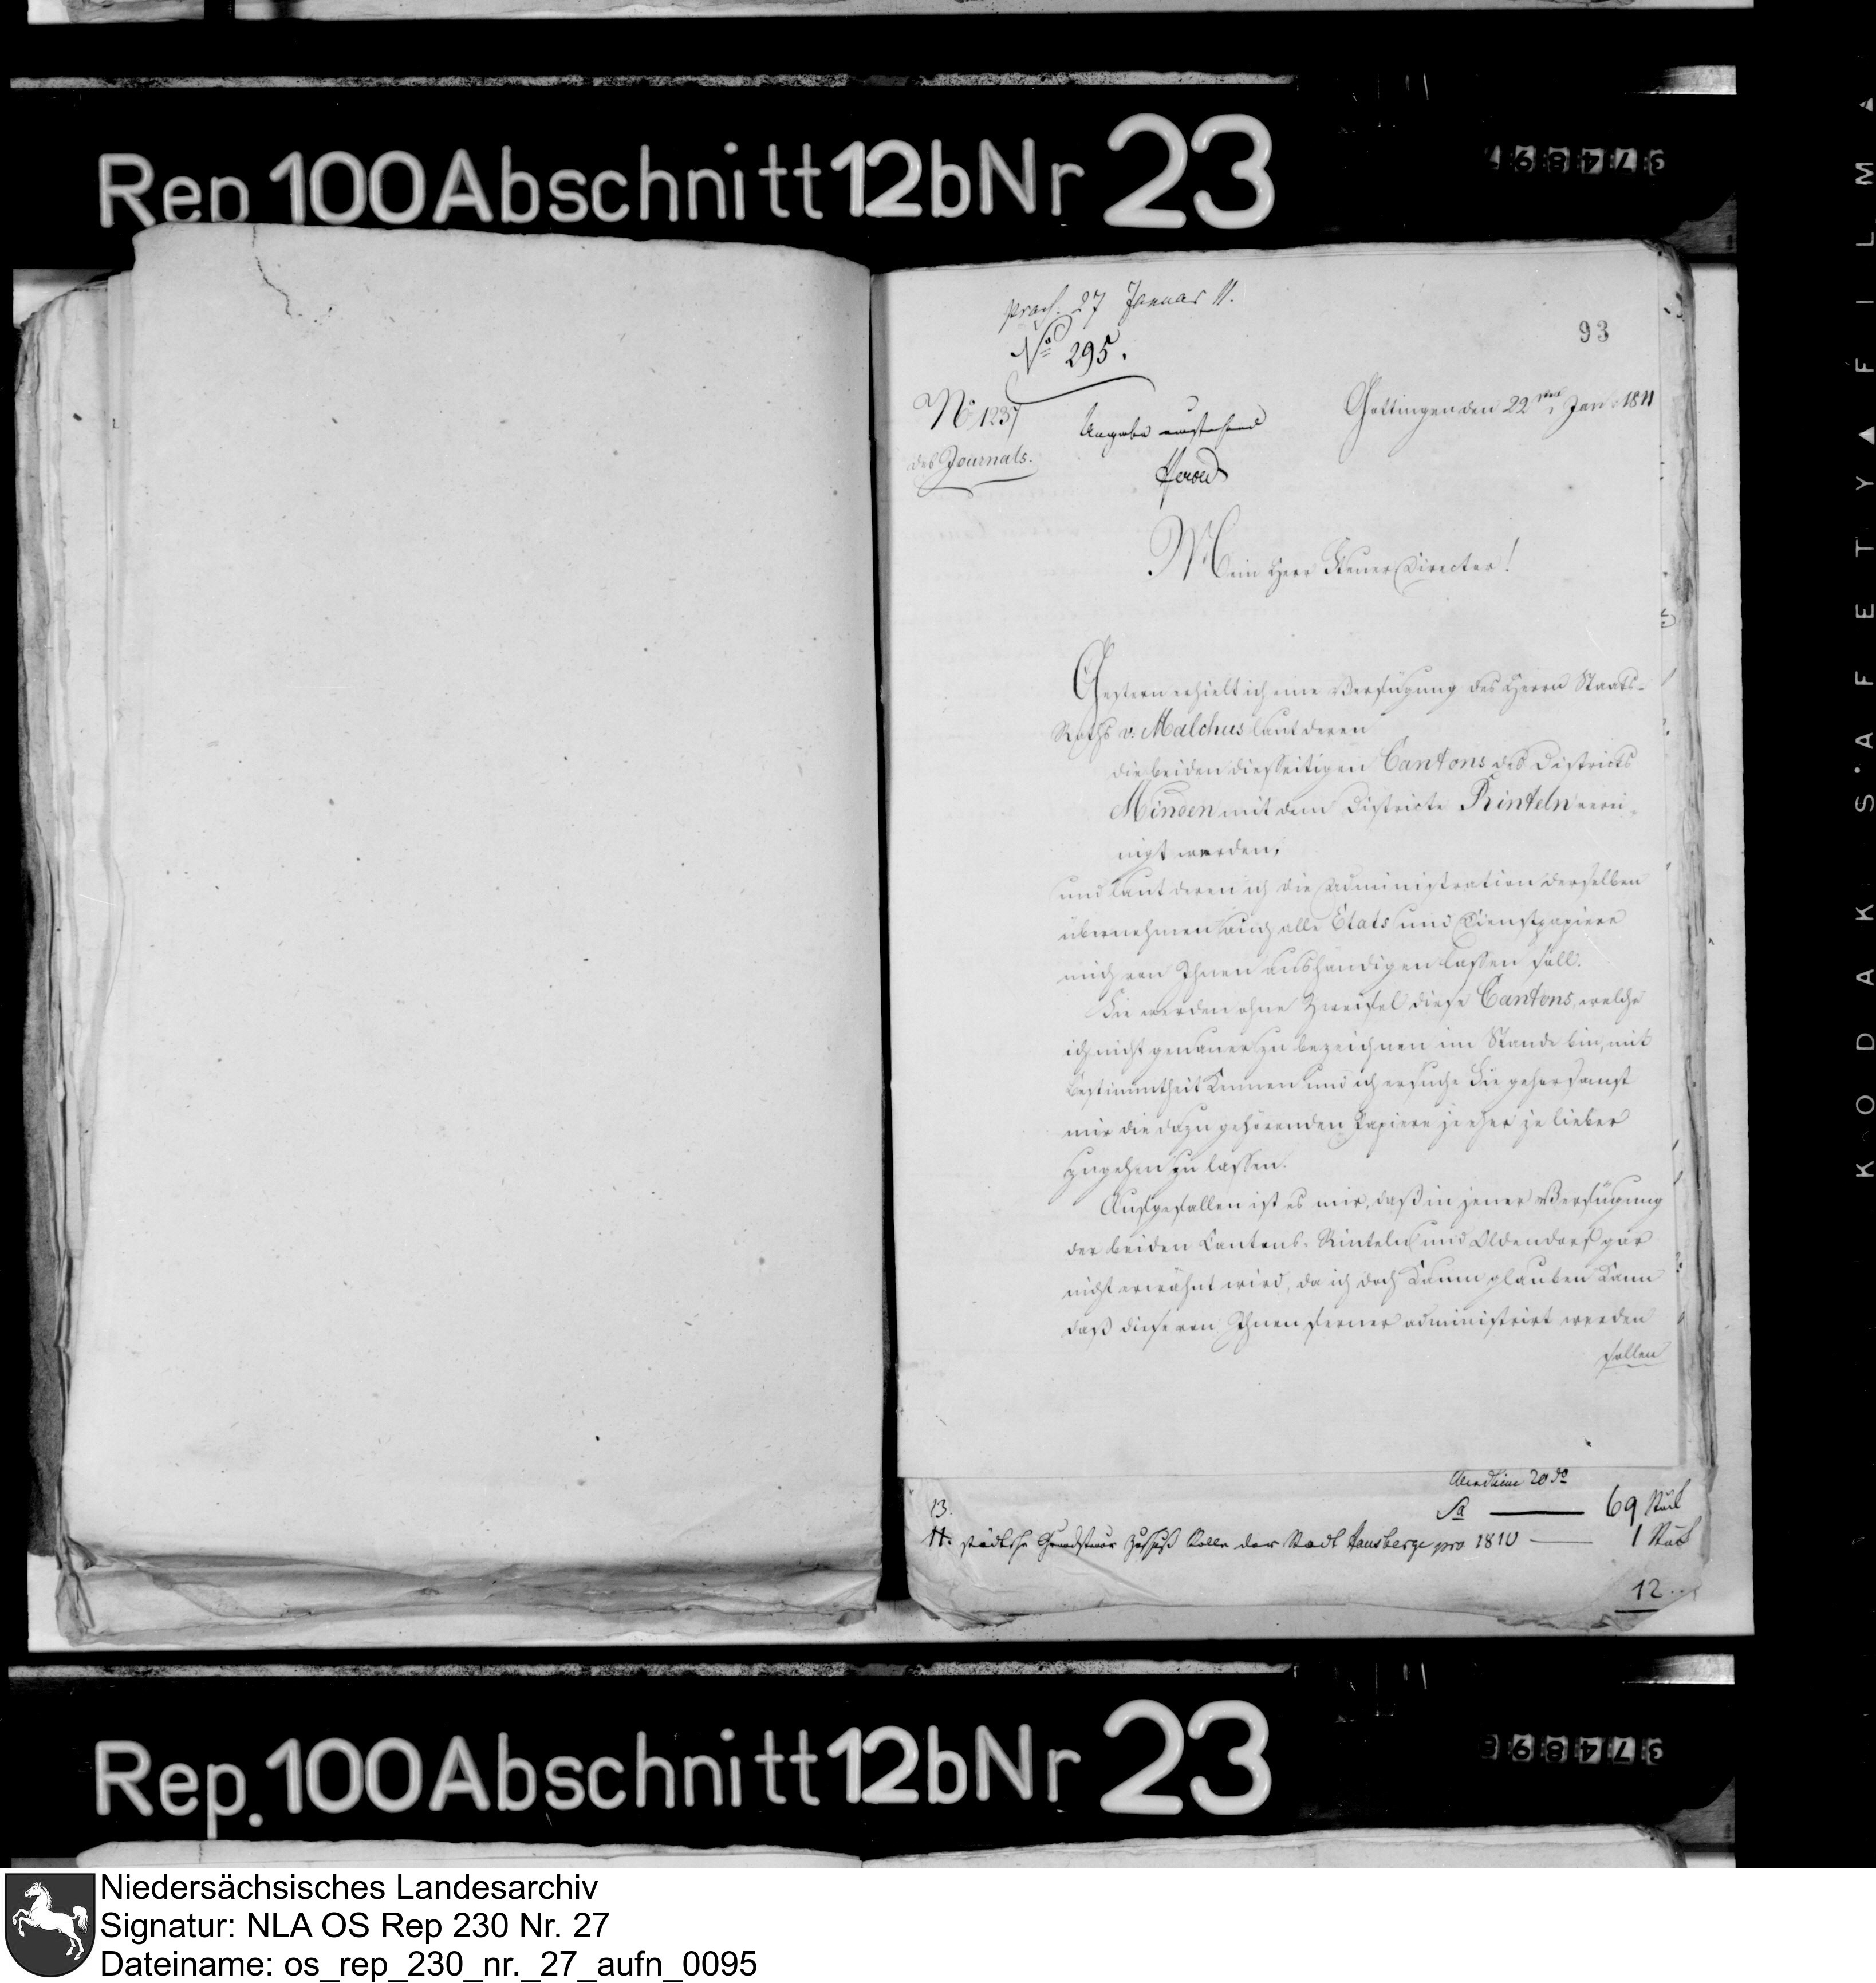 Rep 100 Abschnitt 12b Nr 23
praes. 27 Januar 11.
No 295.
93
No 1237
des Journals.
Goettingen den 22ten Jan. 1811
Mein Herr Steuer Director!
Gestern erhielt ich eine Verfügung des Herrn Staats-
Raths v. Malchus laut deren
die beiden diesseitigen Cantons des Districts
Minden mit dem Districte Rinteln verei-
nigt werden,
und laut deren ich die Administration derselben
übernehmen auch alle Etats und Dienstpapiere
mich von Ihnen aushändigen lassen soll.
Sie werden ohne Zweifel diese Cantons, welche
ich nicht genauer zu bezeichnen im Stande bin, mit
Bestimmtheit kennen und ich ersuche Sie gehorsamst
mir die dazu gehörenden Papiere je eher je lieber
zugehen zu lassen.
Aufgefallen ist es mir, daß in jener Verfügung
der beiden Cantons Rinteln und Oldendorf gar
nicht erwähnt wird, da ich doch kaum glauben kann
daß diese von Ihnen ferner administrirt werden
sollen
20 do
13. Sa 69 Stück
11. städtsche Grundsteuer Zuschuß Rolle der Stadt Hausberge pro 1810 1 Stück
12
Rep. 100 Abschnitt 12b Nr 23
KODAK SAFETY FILM
Niedersächsisches Landesarchiv
Signatur: NLA OS Rep 230 Nr. 27
Dateiname: os_rep_230_nr._27_aufn_0095